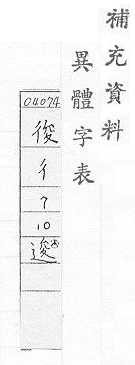 補充資料
異體字表
04074
彳
7
10
逡